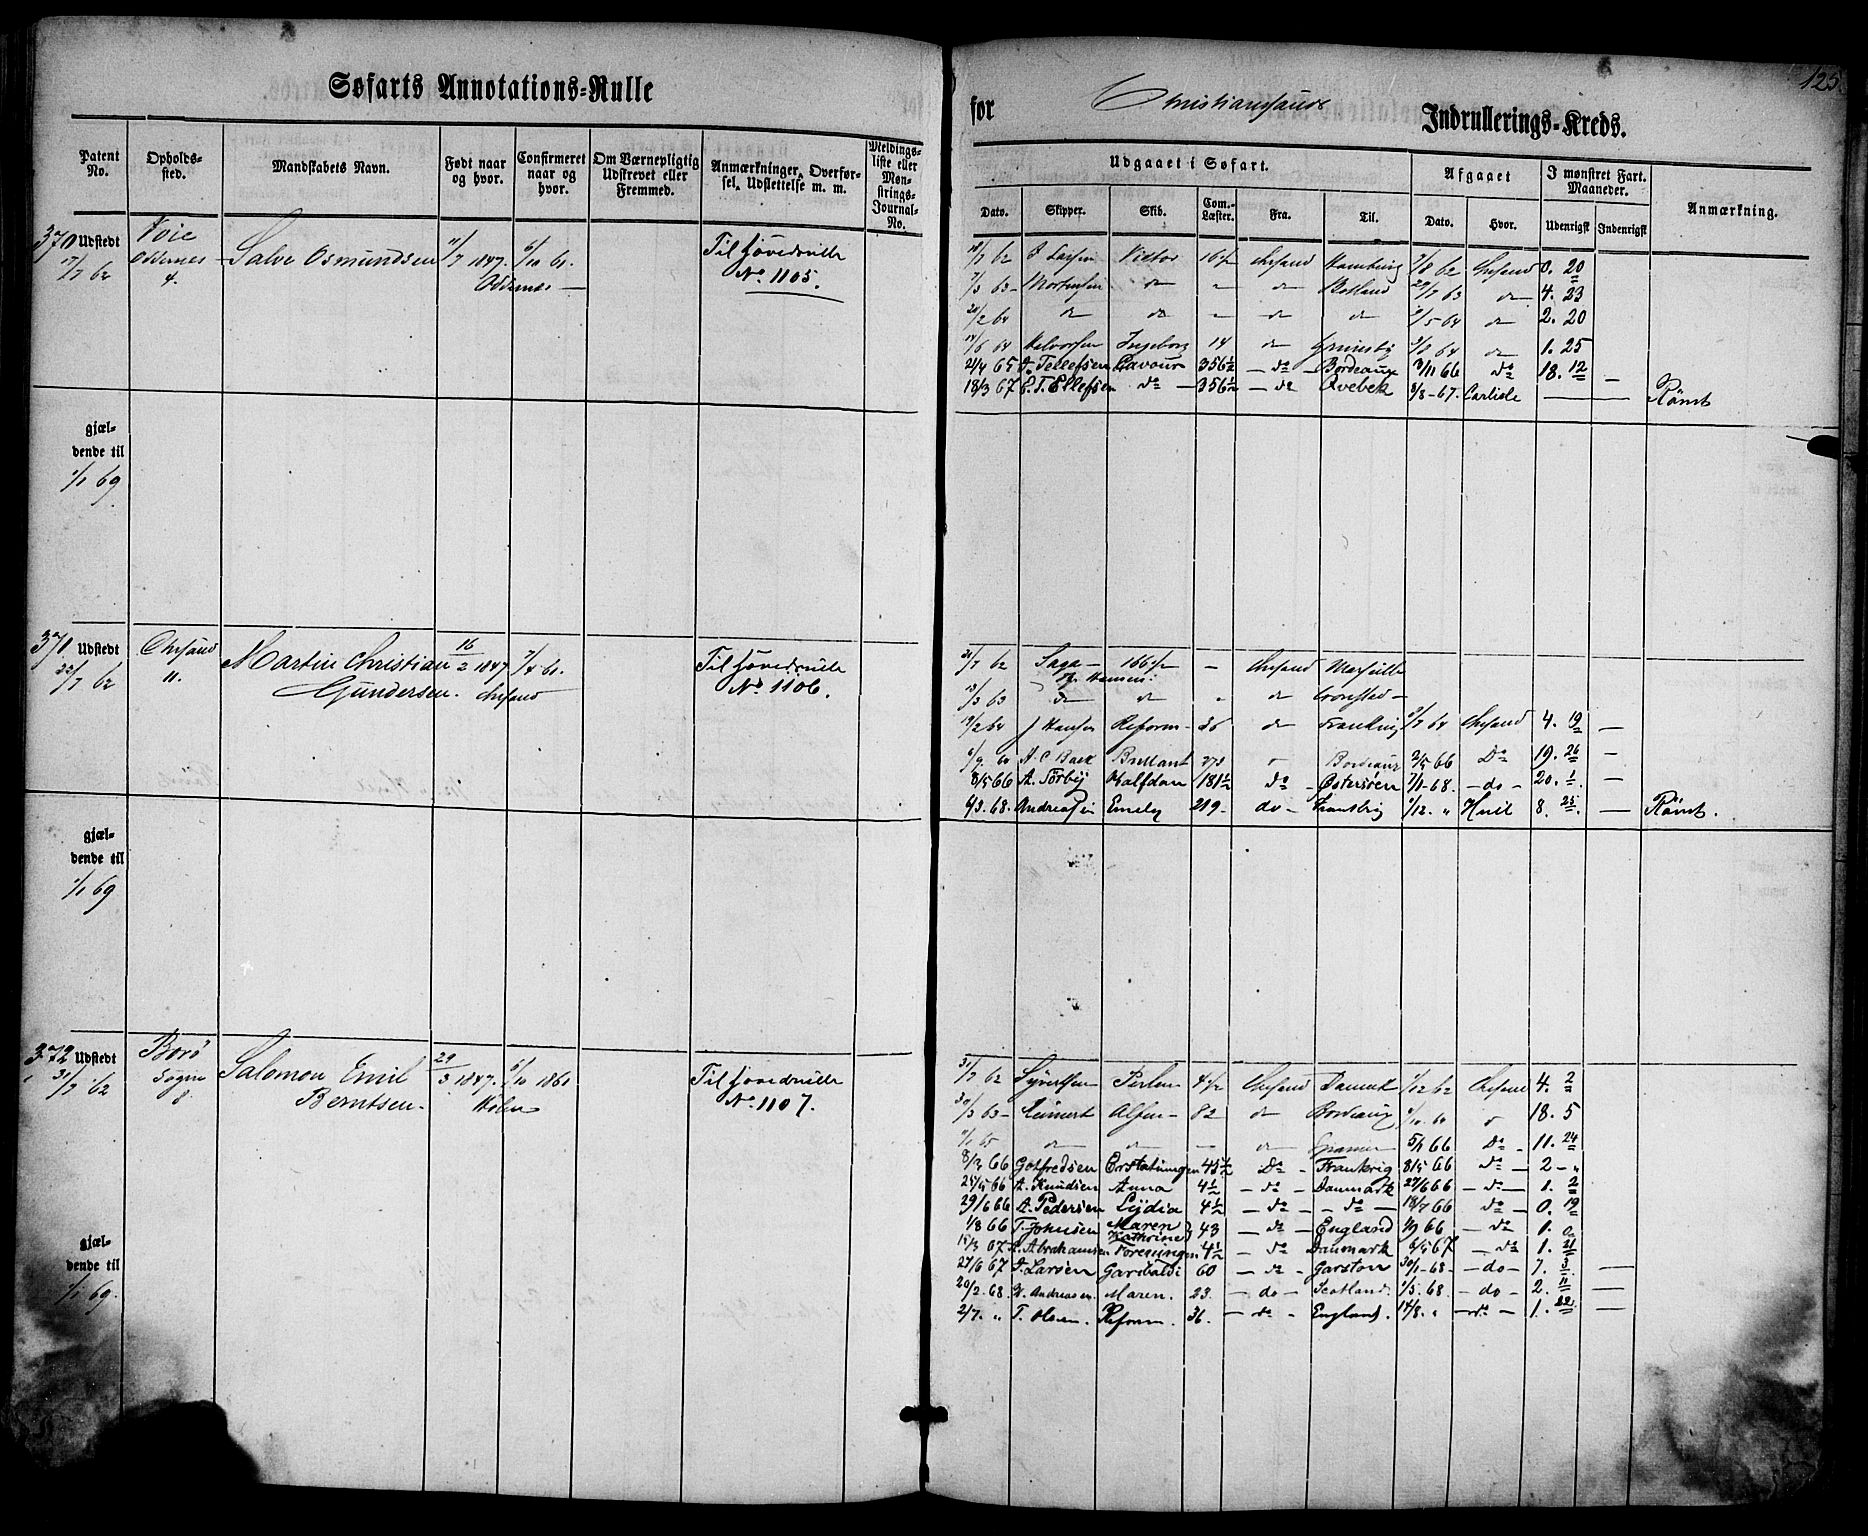 125
Søfarts Annotations-Rulle for Christianssands Indrullerings-Kreds.
Patent No. Opholds-sted. Mandskabets Navn. Født naar og hvor. Confirmeret naar og hvor. Om Værnepligtig Udskrevet eller Fremmed. Anmærkninger, Overførsel, Udslettelse m. m. Meldings-liste eller Mønstrings-Journal-No.
Udgaaet i Søfart. Afgaaet I mønstret Fart. Maaneder. Anmærkning.
Dato. Skipper. Skib. Com.-Læster. Fra. Til. Dato. Hvor. Udenrigsk Indenrigsk
370 Udstedt 17/7 62
Voie Oddernes 4.
Salve Osmundsen
11/7 1847. Oddernes
6/10 61.
Til Hovedrulle No. 1105.
18/7 62 Larsen Victor 16 1/2 Chrsand Hamburg 7/8 62 Chrsand 0. 20
7/3 63 Mortensen do do 29/7 63 do 4. 23
20/2 64 do do do do 9/5 64 do 2. 20
14/6 64 Halvorsen Ingeborg 14 do Grimsby 64 do 1. 25
21/4 65 A. Tellefsen Cavour 356 1/2 do Bordeaux 3/11 66 do 18. 12
18/3 67 E. T. Ellefsen do 356 1/2 do Qvebek 8/8 67. Carlisle Rømt
gjæl-
dende til
1/1 69
371 Udstedt 22/7 62
Chrsand 11.
Martin Christian Gundersen.
16/2 1847 Chrsand
7/4 61.
Til Hovedrulle No. 1106.
31/7 62 Saga 166 1/2 Chrsand Marseille
Hansen
13/3 63 do do do Cronsted
19/2 64 J Hansen Reform 36 do Frankrig 9/7 64 Chrsand 4. 19
6/9 64 A. C Back Brillant do Bordeaux 2/5 66 Do 19. 26
8/5 66 A. Törbij Halfdan 181 1/2 do Østersøen 7/1 68 do 20. 1
6/3. 68. Andreasen Emely 219 do Frankrig 1/12. " Hull 8. 25. Rømt.
gjæl-
dende til
1/1 69
372 Udstedt 31/7 62
Borø Søgne 8.
Salomon Emil Berntsen.
29/3 1847. Holm
6/10 1861
Til Hovedrulle No. 1107.
31/7 62 Syvertsen Perlen 4 1/2 Chrsand Danmk 1/12 62 Chrsand 4. 2
30/3 63 Alfen 82 do Bordeaux 1/10 64 18. 5
11/1 65 do do do Spanien 5/1 66 Do 11. 24
8/3 66 Gotfredsen Erstatningen 4 1/2 Do Frankrig 8/5 66 do 2 "
25/5 66 A. Knudsen Anna 4 1/2 do Danmark 27/6 66 do 1. 2
29/6 66 A. Pedersen Lydia 4 1/2 do do 18/7 66 do 0. 19
1/8 66 T. Johnsen Maren Kathrine 43 do England 1/9 66 do 1. 0
15/3 67 L. Abrahamsen Foreningen 4 1/2 do Danmark 6/5 67 do 1. 21
27/6 67 A. Larsen Garibaldi 60 do Garston 30/1 68 do 7. 3
20/2 68 W. Andreasen. Maren. 23. do Scotland. 1/5. 68 do 2. 11
2/7. " T. Olsen. Reform. 36. do England. 14/8. " do 1. 22.
gjæl-
dende til
1/1 69.